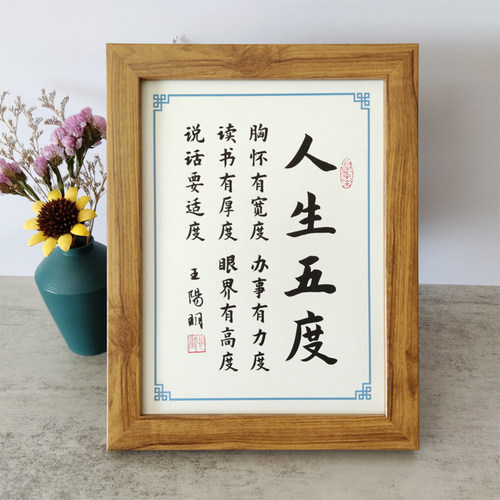 人生五度
胸怀有宽度 办事有力度
读书有厚度 眼界有高度
说话要适度
王陽明